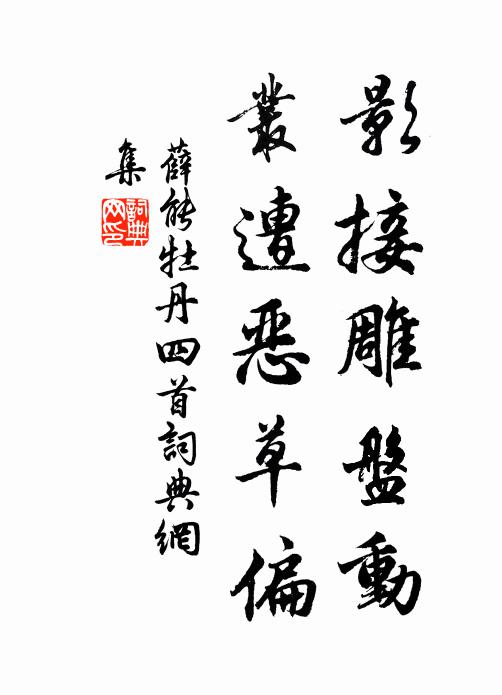 影接雕盤動
叢遭惡草偏
薛能牡丹四首詞典網
集
詞典
网印